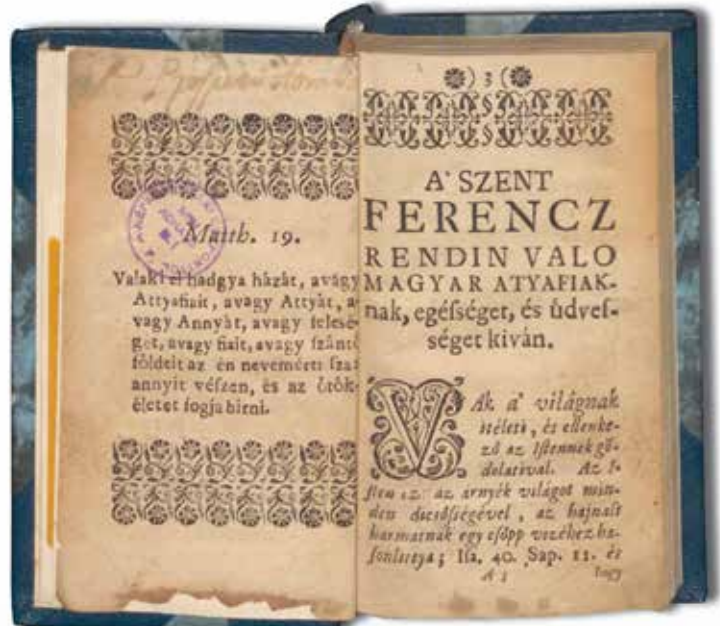 Matth. 19.
Valaki el hadgya házát, avagy
Attyafiait, avagy Attyát, a-
vagy Annyát, avagy felesé-
get, avagy fiait, avagy ſzántó
földeit az én nevemért: ſzáz
annyit véſzen, és az örök-
életet fogja birni.
❀) 3 (❀
A' SZENT
FERENCZ
RENDIN VALO
MAGYAR ATYAFIAK-
nak, egéſséget, és üdveſ-
séget kiván.
VAk a' világnak
itéleti, és ellenke-
ző az Iſtennek gő-
dolatival. Az I-
ſten ez az árnyék világot min-
den dicsőſségével, az hajnali
harmatnak egy cſöpp vizéhez ha-
ſonlittya; Iſa. 40. Sap. 11. és
A 2
hogy